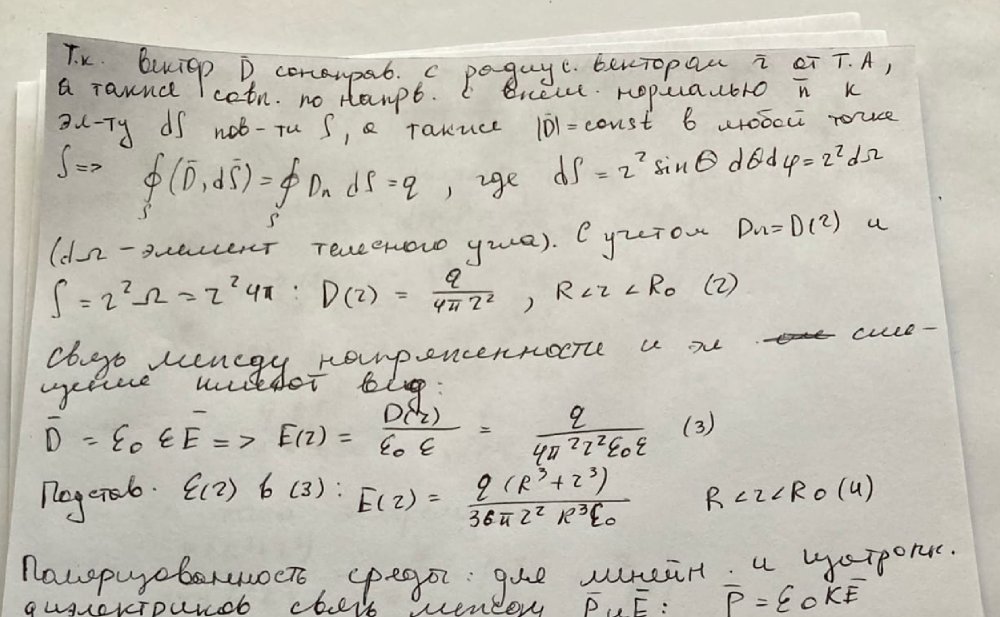 Т.к. вектор D̄ сонаправ. с радиус. вектором r̄ от Т.А,
а также совп. по напрв. с внеш. нормалью n̄ к
эл-ту dS пов-ти S, а также |D̄|=const в любой точке
S => ∮_S (D̄,dS̄) = ∮_S Dn dS = q , где dS = r² sinθ dθdφ = r²dΩ
(dΩ – элемент телесного угла). С учетом Dn=D(r) и
S = r²Ω = r²4π : D(r) = q / 4πr² , R<r<R₀ (2)
Связь между напряженности и эл сме-
щение имеют вид:
D̄ = ε₀ ε Ē => E(r) = D(r) / ε₀ ε = q / 4πr²ε₀ε (3)
Подстав. ε(r) в (3) : E(r) = q (R³+r³) / 36πr² R³ε₀ R<r<R₀ (4)
Поляризованность среды: для линейн. и изотропн.
диэлектриков связь между P̄ и Ē : P̄ = ε₀KĒ